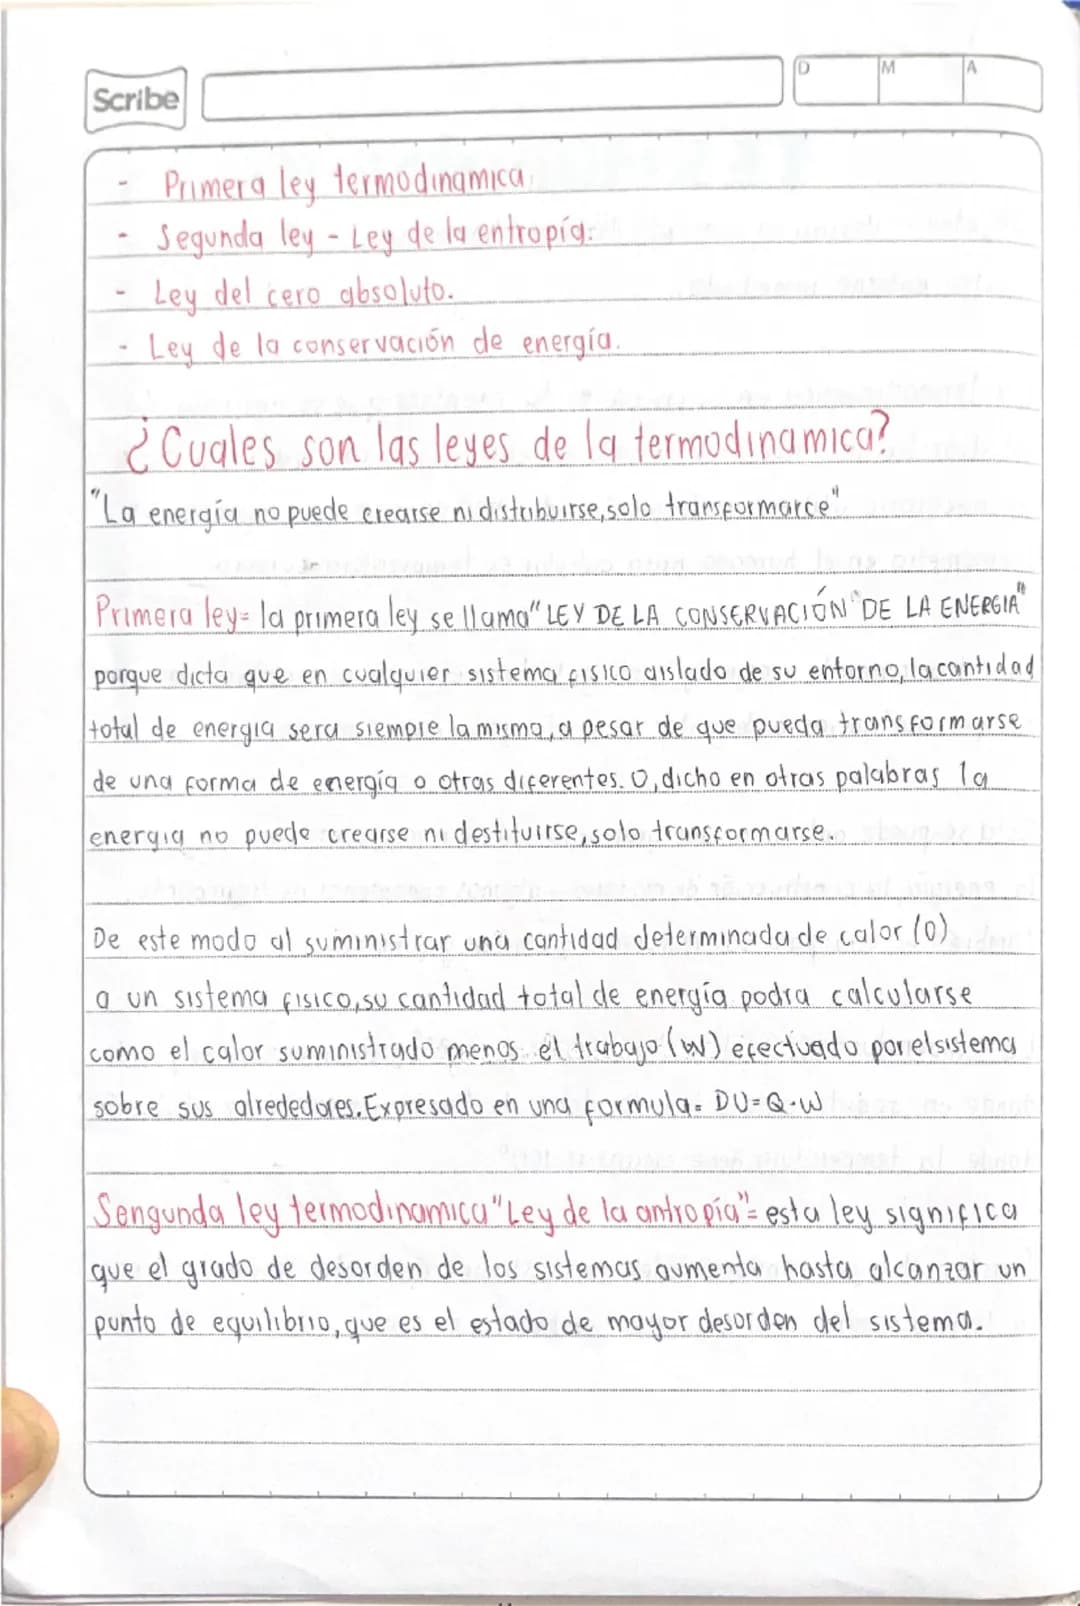 Scribe
D M A
- Primera ley termodinamica.
- Segunda ley - Ley de la entropía.
- Ley del cero absoluto.
- Ley de la conservación de energía.
¿Cuales son las leyes de la termodinamica?
"La energía no puede crearse ni distribuirse, solo transformarce"
Primera ley= la primera ley se llama "LEY DE LA CONSERVACIÓN "DE LA ENERGIA"
porque dicta que en cualquier sistema fisico aislado de su entorno, la cantidad
total de energia sera siempre la misma, a pesar de que pueda transformarse
de una forma de energía o otras diferentes. O, dicho en otras palabras la
energia no puede crearse ni destituirse, solo transformarse.
De este modo al suministrar una cantidad determinada de calor (0)
a un sistema fisico, su cantidad total de energía podra calcularse
como el calor suministrado menos el trabajo (W) efectuado por el sistema
sobre sus alrededores. Expresado en una formula= DU=Q-W
Sengunda ley termodinamica "Ley de la antropía"= esta ley significa
que el grado de desorden de los sistemas aumenta hasta alcanzar un
punto de equilibrio, que es el estado de mayor desorden del sistema.